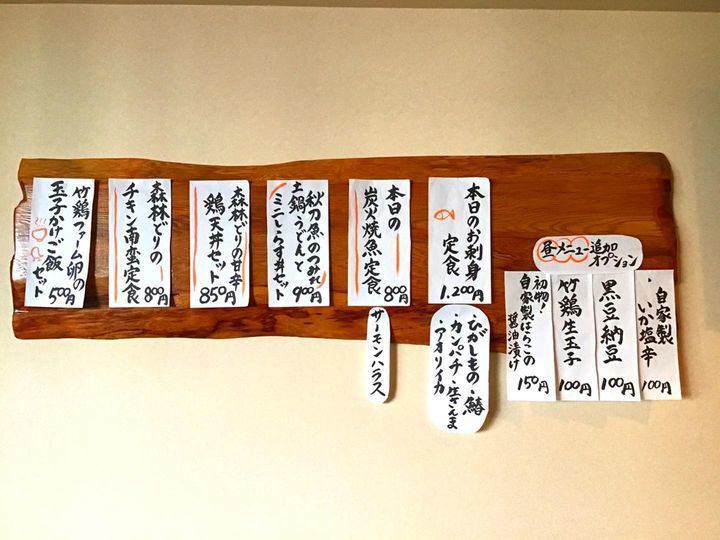 本日のお刺身
定食
1.200円
ひがしもの・鰆
・カンパチ・生さんま
・アオリイカ
本日の
炭火焼魚定食
800円
サーモンハラス
秋刀魚のつみれ
土鍋うどんと
ミニしらす丼セット
900円
森林どりの甘辛
鶏天丼セット
850円
森林どりの
チキン南蛮定食
800円
竹鶏ファーム卵の
玉子かけご飯
セット
500円
昼メニュー追加
オプション
・自家製
いか塩辛
100円
黒豆納豆
100円
竹鶏生玉子
100円
初物!
自家製はらこの
醤油漬け
150円